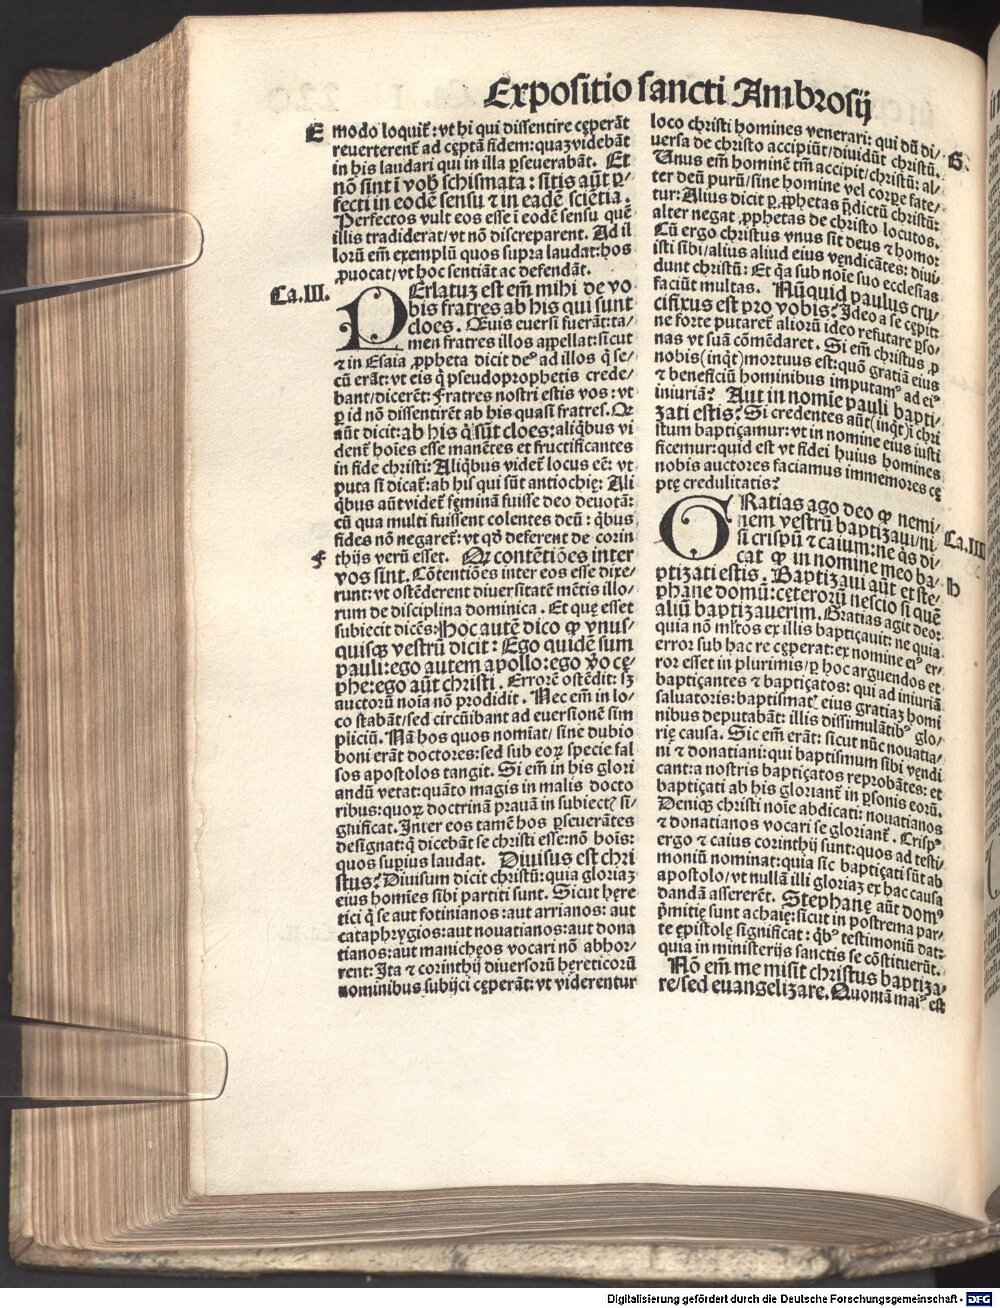 Expositio sancti Ambrosij
E modo loquit̃: vt hi qui dissentire cęperãt
reuerterent̃ ad cęptã fidem: quaʒ videbãt
in his laudari qui in illa ꝑseuerabãt. Et
nõ sint ĩ vob̃ schismata: sitis aũt ꝑ-
fecti in eodẽ sensu ⁊ in eadẽ sciẽtia.
Perfectos vult eos esse ĩ eodẽ sensu quẽ
illis tradiderat/ vt nõ discreparent. Ad il
lorũ em̃ exemplũ quos supra laudat: hos
ꝓuocat/ vt hoc sentiãt ac defendãt.
Ca.III.
PErlatuʒ est em̃ mihi de vo
bis fratres ab his qui sunt
cloes. Quis euersi fuerãt: ta/
men fratres illos appellat: sicut
⁊ in Esaia ꝓpheta dicit deꝰ ad illos q̃ se/
cũ erãt: vt eis q̃ pseudoprophetis crede/
bant/ dicerẽt: Fratres nostri estis vos: vt
ꝑ id nõ dissentirẽt ab his quasi fratres. Qꝛ
aũt dicit: ab his q̃ sũt cloes: aliq̃bus vi
dent̃ hoĩes esse manẽtes et fructificantes
in fide christi: Aliq̃bus videt̃ locus eẽ: vt
puta si dicat̃: ab his qui sũt antiochię: Ali
q̃bus aũt videt̃ fęminã fuisse deo deuotã:
cũ qua multi fuissent colentes deũ: q̃bus
fides nõ negaret̃: vt qd̃ deferent de corin
f thijs verũ esset. Qꝛ contẽtiões inter
vos sint. Cõtentiões inter eos esse dixe/
runt: vt ostẽderent diuersitatẽ mẽtis illo/
rum de disciplina dominica. Et quę esset
subiecit dicẽs: Hoc autẽ dico ꝙ vnus/
quisqꝫ vestrũ dicit: Ego quidẽ sum
pauli: ego autem apollo: ego ꝟo cę/
phe: ego aũt christi. Errorẽ ostẽdit: sʒ
auctorũ noĩa nõ prodidit. Nec em̃ in lo/
co stabãt/ sed circũibant ad euersionẽ sim
pliciũ. Nã hos quos nomĩat/ sine dubio
boni erãt doctores: sed sub eoꝝ specie fal
sos apostolos tangit. Si em̃ in his glori
andũ vetat: quãto magis in malis docto
ribus: quoꝝ doctrinã prauã in subiectꝭ si/
gnificat. Inter eos tamẽ hos ꝑseuerãtes
designat: q̃ dicebãt se christi esse: nõ hoĩs:
quos supius laudat. Diuisus est chri
stus? Diuisum dicit christũ: quia gloriaʒ
eius homĩes sibi partiti sunt. Sicut hęre
tici q̃ se aut fotinianos: aut arrianos: aut
cataphrygios: aut nouatianos: aut dona
tianos: aut manichęos vocari nõ abhor/
rent: Ita ⁊ corinthij diuersorũ hęreticorũ
nominibus subijci cęperãt: vt viderentur
loco christi homines venerari: qui dũ di/
G. uersa de christo accipiũt/ diuidũt christũ.
Unus em̃ hominẽ tm̃ accipit/ christũ: al/
ter deũ purũ/ sine homine vel corpe fate/
tur: Alius dicit ꝑ ꝓphetas p̃dictũ christũ:
alter negat ꝓphetas de christo locutos.
Cũ ergo christus vnus sit deus ⁊ homo:
isti sibi/ alius aliud eius vendicãtes: diui/
dunt christũ: Et q̃a sub noĩe suo ecclesias
faciũt multas. Nũquid paulus cru/
cifixus est pro vobis? Ideo a se cępit:
ne forte putaret̃ aliorũ ideo refutare ꝑso/
nas vt suã cõmẽdaret. Si em̃ christus ꝓ
nobis (inqt̃) mortuus est: quõ gratiã eius
⁊ beneficiũ hominibus imputamꝰ ad eiꝰ
iniuriã? Aut in nomie pauli bapti/
zati estis? Si credentes aũt (inqt̃) ĩ chri
stum baptiçamur: vt in nomine eius iusti
ficemur: quid est vt fidei huius homines
nobis auctores faciamus immemores cę
ptę credulitatis?
Ca.IIII
GRatias ago deo ꝙ nemi/
nem vestrũ baptizaui/ ni/
si crispũ ⁊ caium: ne q̃s di/
cat ꝙ in nomine meo ba/
h ptizati estis. Baptizaui aũt et ste/
phane domũ: cęterorũ nescio si quẽ
aliũ baptizauerim. Gratias agit deo:
quia nõ ml̃tos ex illis baptiçauit: ne quia
error sub hac re cęperat: ex nomine eiꝰ er/
ror esset in plurimis/ ꝑ hoc arguendos et
baptiçantes ⁊ baptiçatos: qui ad iniuriã
saluatoris: baptismatꝭ eius gratiaʒ homi
nibus deputabãt: illis dissimulãtibꝰ glo/
rię causa. Sic em̃ erãt: sicut nũc nouatia/
ni ⁊ donatiani: qui baptismum sibi vendi
cant: a nostris baptiçatos reprobãtes: et
baptiçati ab his gloriant̃ in ꝑsonis eorũ.
Deniqꝫ christi noĩe abdicati: nouatianos
⁊ donatianos vocari se gloriant̃. Crispꝰ
ergo ⁊ caius corinthij sunt: quos ad testi/
moniũ nominat: quia sic baptiçati sũt ab
apostolo/ vt nullã illi gloriaʒ ex hac causa
dandã assererẽt. Stephanę aũt domꝰ
p̃mitię sunt achaię: sicut in postrema par/
te ępistolę significat: q̃bꝰ testimoniũ dat:
quia in ministerijs sanctis se cõstituerũt.
Nõ em̃ me misit christus baptiza/
re/ sed euangelizare. Quoniã maiꝰ est
Digitalisierung gefördert durch die Deutsche Forschungsgemeinschaft - DFG